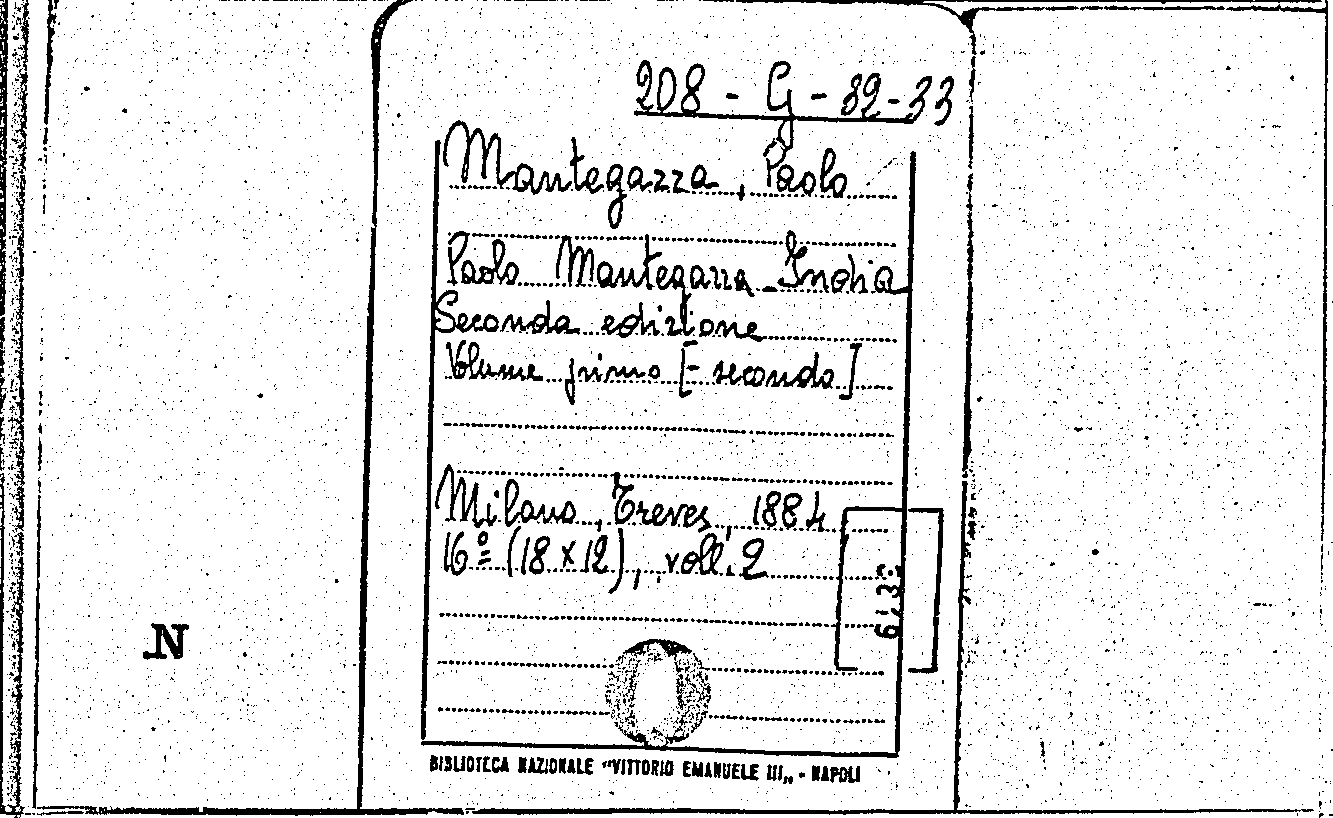 208 - G - 32-33
Mantegazza, Paolo
Paolo Mantegazza - India
Seconda edizione
Volume primo [- secondo]
Milano, Treves, 1884
16º (18 x 12), voll. 2
N
BIBLIOTECA NAZIONALE "VITTORIO EMANUELE III„ - NAPOLI